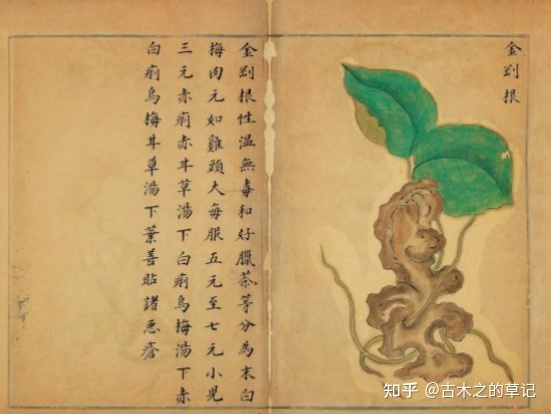 金剛根
金剛根性温無毒和好臘茶等分為末白
梅肉元如雞頭大每服五元至七元小児
三元赤痢赤甘草湯下白痢烏梅湯下赤
白痢烏梅甘草湯下葉善貼諸惡瘡
知乎 @古木之的草记